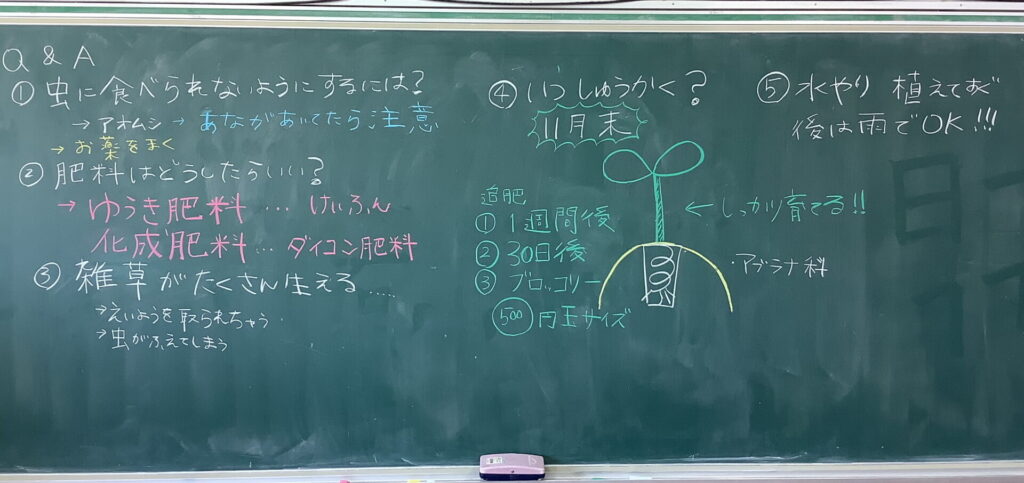 Q & A
① 虫に食べられないようにするには?
→ アオムシ → あながあいてたら注意
→ お薬をまく
② 肥料はどうしたらいい?
→ ゆうき肥料 … けいふん
化成肥料… ダイコン肥料
③ 雑草がたくさん生える……
→えいようを取られちゃう
→虫がふえてしまう
④ いつしゅうかく?
11月末
追肥
① 1週間後
② 30日後
③ ブロッコリー
500 円玉サイズ
← しっかり育てる!!
・アブラナ科
⑤ 水やり 植えてあと
後は雨でOK!!!